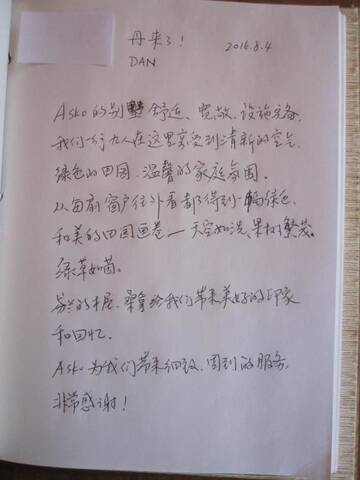 再来了!
2016.8.4
DAN.
Asko的别墅舒适、宽敞、设施完备,
我们一行九人在这里享受到清新的空气,
绿色的田园,温馨的家庭氛围。
从每扇窗户往外看都得到一幅绿色、
和美的田园画卷——天空如洗,果树繁茂,
绿草如茵。
别的木屋、桑拿给我们带来美好的印象
和回忆。
Asko为我们带来细致、周到的服务,
非常感谢!